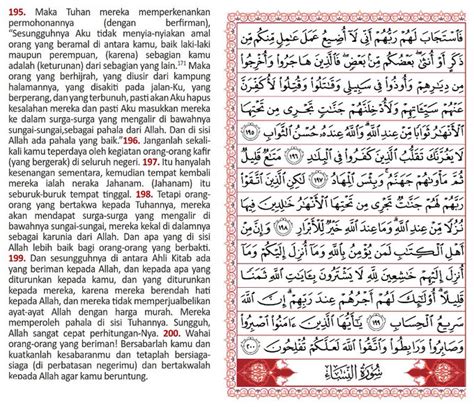 195. Maka Tuhan mereka memperkenankan
permohonannya (dengan berfirman),
“Sesungguhnya Aku tidak menyia-nyiakan amal
orang yang beramal di antara kamu, baik laki-laki
maupun perempuan, (karena) sebagian kamu
adalah (keturunan) dari sebagian yang lain.¹⁷¹ Maka
orang yang berhijrah, yang diusir dari kampung
halamannya, yang disakiti pada jalan-Ku, yang
berperang, dan yang terbunuh, pasti akan Aku hapus
kesalahan mereka dan pasti Aku masukkan mereka
ke dalam surga-surga yang mengalir di bawahnya
sungai-sungai,sebagai pahala dari Allah. Dan di sisi
Allah ada pahala yang baik.”196. Janganlah sekali-
kali kamu teperdaya oleh kegiatan orang-orang kafir
(yang bergerak) di seluruh negeri. 197. Itu hanyalah
kesenangan sementara, kemudian tempat kembali
mereka ialah neraka Jahanam. (Jahanam) itu
seburuk-buruk tempat tinggal. 198. Tetapi orang-
orang yang bertakwa kepada Tuhannya, mereka
akan mendapat surga-surga yang mengalir di
bawahnya sungai-sungai, mereka kekal di dalamnya
sebagai karunia dari Allah. Dan apa yang di sisi
Allah lebih baik bagi orang-orang yang berbakti.
199. Dan sesungguhnya di antara Ahli Kitab ada
yang beriman kepada Allah, dan kepada apa yang
diturunkan kepada kamu, dan yang diturunkan
kepada mereka, karena mereka berendah hati
kepada Allah, dan mereka tidak memperjualbelikan
ayat-ayat Allah dengan harga murah. Mereka
memperoleh pahala di sisi Tuhannya. Sungguh,
Allah sangat cepat perhitungan-Nya. 200. Wahai
orang-orang yang beriman! Bersabarlah kamu dan
kuatkanlah kesabaranmu dan tetaplah bersiap-
siaga (di perbatasan negerimu) dan bertakwalah
kepada Allah agar kamu beruntung.
فَاسْتَجَابَ لَهُمْ رَبُّهُمْ أَنِّي لَا أُضِيعُ عَمَلَ عَامِلٍ مِنْكُمْ مِنْ
ذَكَرٍ أَوْ أُنْثَى بَعْضُكُمْ مِنْ بَعْضٍ فَالَّذِينَ هَاجَرُوا وَأُخْرِجُوا
مِنْ دِيَارِهِمْ وَأُوذُوا فِي سَبِيلِي وَقَاتَلُوا وَقُتِلُوا لَأُكَفِّرَنَّ
عَنْهُمْ سَيِّئَاتِهِمْ وَلَأُدْخِلَنَّهُمْ جَنَّاتٍ تَجْرِي مِنْ تَحْتِهَا
الْأَنْهَارُ ثَوَابًا مِنْ عِنْدِ اللَّهِ وَاللَّهُ عِنْدَهُ حُسْنُ الثَّوَابِ ١٩٥
لَا يَغُرَّنَّكَ تَقَلُّبُ الَّذِينَ كَفَرُوا فِي الْبِلَادِ ١٩٦ مَتَاعٌ قَلِيلٌ
ثُمَّ مَأْوَاهُمْ جَهَنَّمُ وَبِئْسَ الْمِهَادُ ١٩٧ لَكِنِ الَّذِينَ اتَّقَوْا رَبَّهُمْ
لَهُمْ جَنَّاتٌ تَجْرِي مِنْ تَحْتِهَا الْأَنْهَارُ خَالِدِينَ فِيهَا نُزُلًا
مِنْ عِنْدِ اللَّهِ وَمَا عِنْدَ اللَّهِ خَيْرٌ لِلْأَبْرَارِ ١٩٨ وَإِنَّ مِنْ
أَهْلِ الْكِتَابِ لَمَنْ يُؤْمِنُ بِاللَّهِ وَمَا أُنْزِلَ إِلَيْكُمْ وَمَا
أُنْزِلَ إِلَيْهِمْ خَاشِعِينَ لِلَّهِ لَا يَشْتَرُونَ بِآيَاتِ اللَّهِ ثَمَنًا
قَلِيلًا أُولَئِكَ لَهُمْ أَجْرُهُمْ عِنْدَ رَبِّهِمْ إِنَّ اللَّهَ
سَرِيعُ الْحِسَابِ ١٩٩ يَا أَيُّهَا الَّذِينَ آمَنُوا اصْبِرُوا
وَصَابِرُوا وَرَابِطُوا وَاتَّقُوا اللَّهَ لَعَلَّكُمْ تُفْلِحُونَ ٢٠٠
سُورَةُ النِّسَاءِ